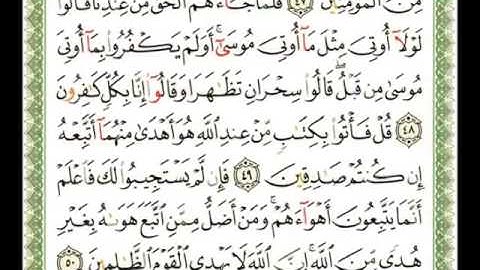 مِنَ ٱلْمُؤْمِنِينَ ٤٧ فَلَمَّا جَآءَهُمُ ٱلْحَقُّ مِنْ عِندِنَا قَالُوا۟
لَوْلَآ أُوتِىَ مِثْلَ مَآ أُوتِىَ مُوسَىٰٓ ۚ أَوَلَمْ يَكْفُرُوا۟ بِمَآ أُوتِىَ
مُوسَىٰ مِن قَبْلُ ۖ قَالُوا۟ سِحْرَانِ تَظَٰهَرَا وَقَالُوٓا۟ إِنَّا بِكُلٍّ كَٰفِرُونَ
٤٨ قُلْ فَأْتُوا۟ بِكِتَٰبٍ مِّنْ عِندِ ٱللَّهِ هُوَ أَهْدَىٰ مِنْهُمَآ أَتَّبِعْهُ
إِن كُنتُمْ صَٰدِقِينَ ٤٩ فَإِن لَّمْ يَسْتَجِيبُوا۟ لَكَ فَٱعْلَمْ
أَنَّمَا يَتَّبِعُونَ أَهْوَآءَهُمْ ۚ وَمَنْ أَضَلُّ مِمَّنِ ٱتَّبَعَ هَوَىٰهُ بِغَيْرِ
هُدًى مِّنَ ٱللَّهِ ۚ إِنَّ ٱللَّهَ لَا يَهْدِى ٱلْقَوْمَ ٱلظَّٰلِمِينَ ٥٠